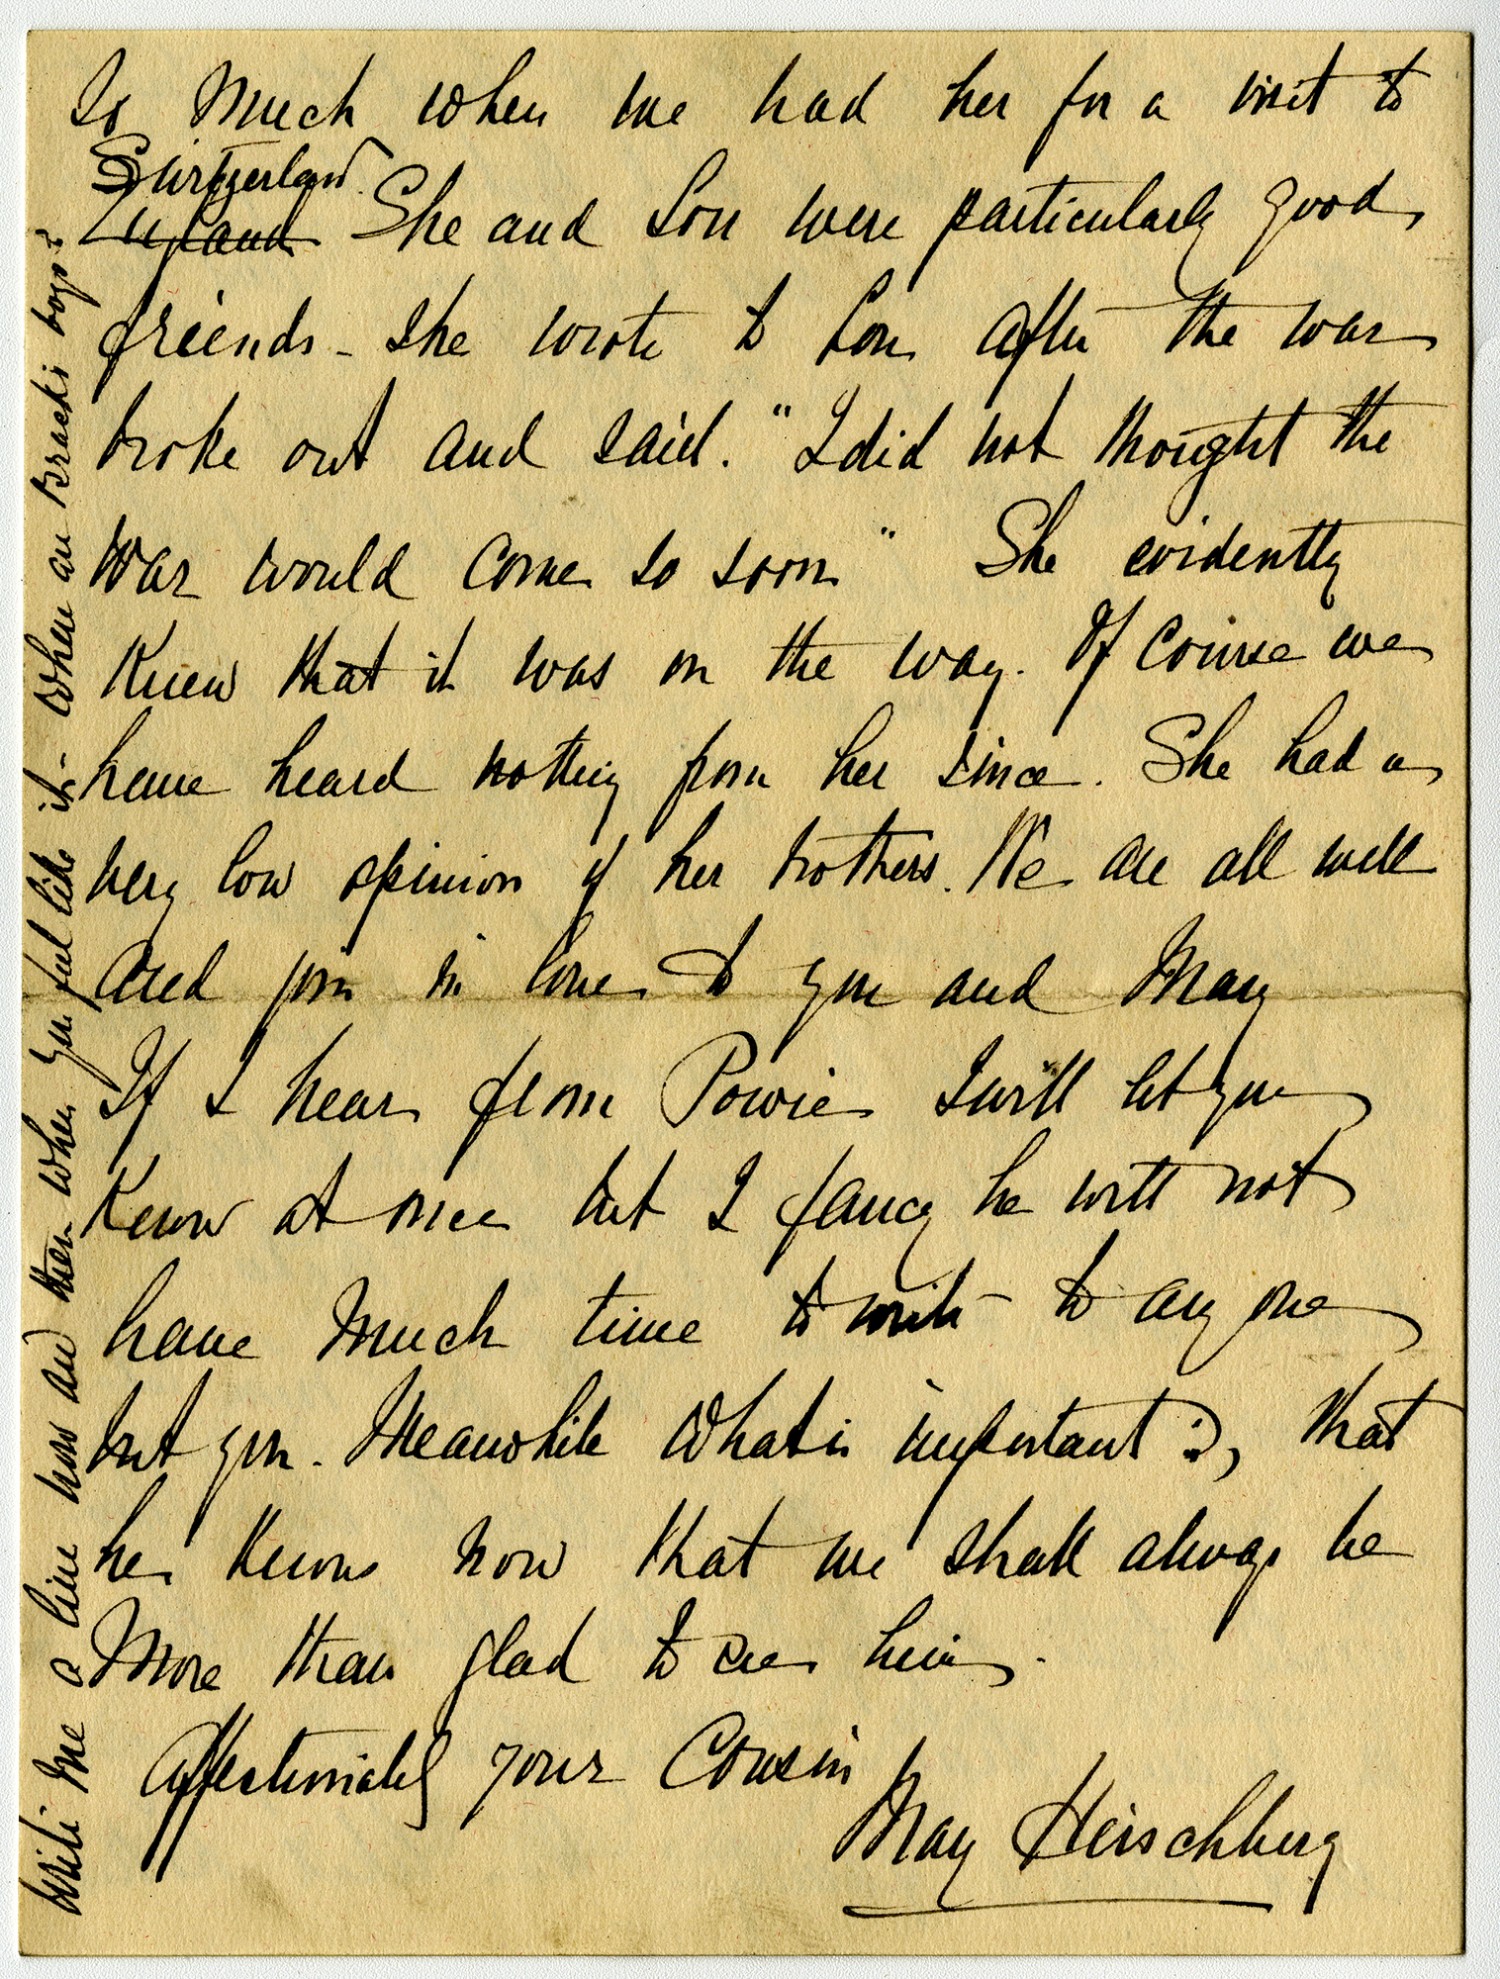 so much when we had her for a visit to
Switzerland.
England She and Lou were particularly good
friends - she wrote to Lou after the war
broke out and said. "I did not thought the
war would come so soon" She evidently
knew that it was on the way. Of course we
have heard nothing from her since. She had a
very low opinion of her brothers. We are all well
and join in love to you and Mary
If I hear from Powie I will let you
know at once but I fancy he will not
have much time to write to any one
but you. Meanwhile what is important is, that
he knows now that we shall always be
more than glad to see him.
Affectionately your Cousin
May Hirschberg
Write me a line now and then when you feel like it - Where are boys?